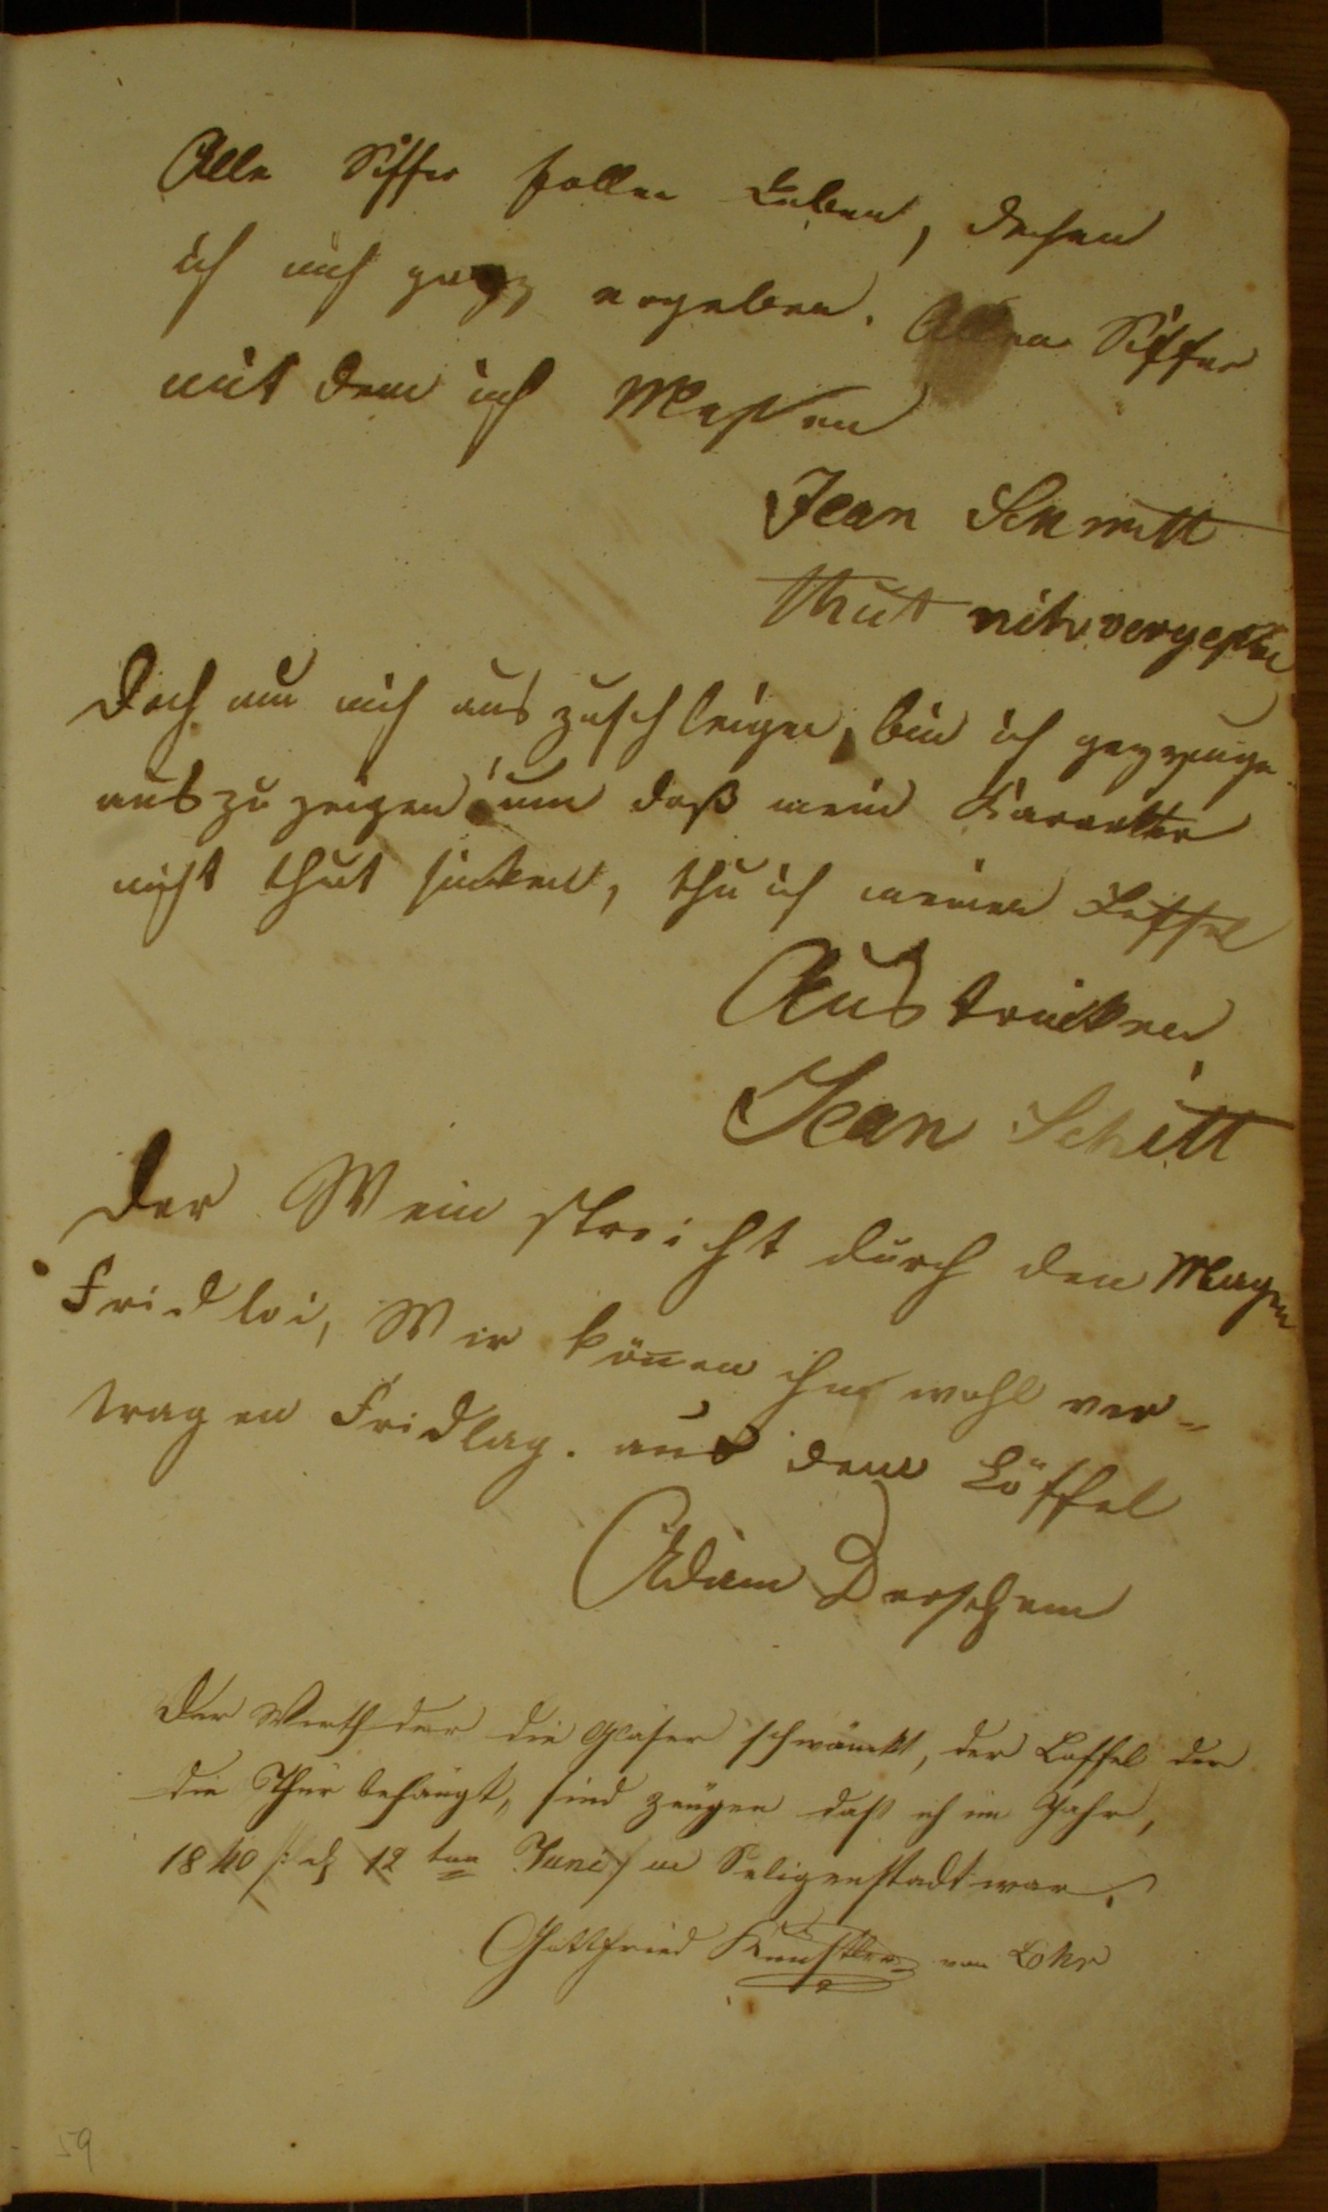 Alle Siffer sollen Leben, dessen
ich mich ganz ergeben. Allen Siffer
mit dem ich Messen
Jean Schmitt
thut nit vergessen
Doch um mich auszuschleigen, bin ich gezwunge
auszuzeigen um daß mein Karackter
nicht thut sincken, thu ich meinen Leffel
Austrincken
Jean Schitt
Der Wein streicht durch den Magen
Fridloi, Wir können ihn wohl ver-
tragen Fridlag. aus dem Löffel
Adam Derschem
Der Werth der die Glaser schwänckt, der Loffel der
die Thür behängt, sind zeugen daß ich im Jahr,
1840 /: d 12 ten Juni / in Seligenstadt war.
Gottfried Künstler von Lohr
59